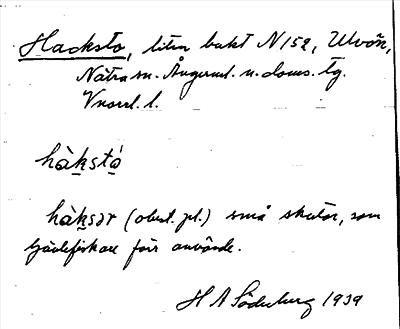 Hacksta, liten bukt N 152, Ulvön,
Nätra sn. Ångerml. n. doms. tg.
Vnorrl. l.
hàk̠stá̠
hàk̠sər (obest. pl.) små skutor, som
Gävlefiskare förr använde.
H A Söderberg 1939